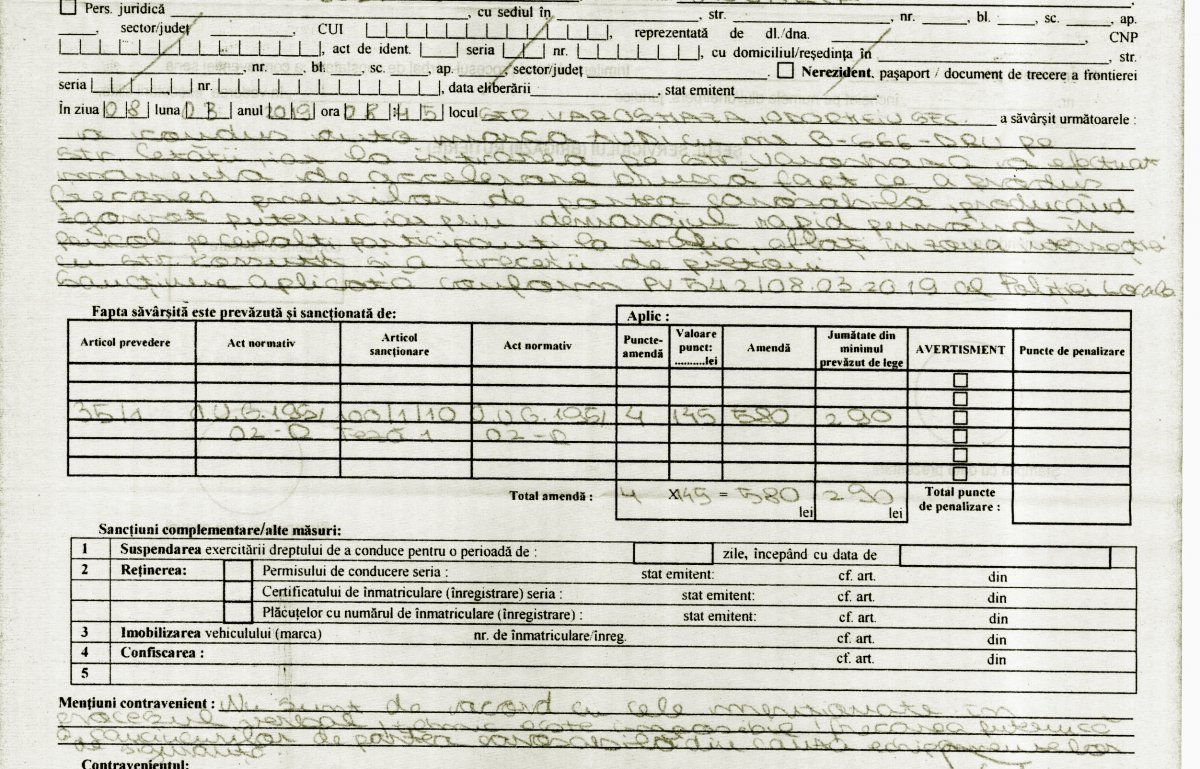 Pers. juridică , cu sediul în , str. , nr. , bl. , sc. , ap.
, sector/județ , CUI , reprezentată de dl./dna. , CNP
, act de ident. seria nr. , cu domiciliul/reședința în , str.
, nr. , bl. , sc. , ap. , sector/județ . Nerezident, pașaport / document de trecere a frontierei
seria nr. , data eliberării , stat emitent
În ziua 08 luna 03 anul 2019 ora 08:45 locul STR VAROSHAZA, ODORHEIU SEC. a săvârșit următoarele :
a condus auto marca cu nr B-666- pe
str Cetății, iar la intrarea pe str Varoshaza a efectuat
de accelerare bruscă fapt ce a produs
frecarea pneurilor de partea carosabilă producând
zgomot puternic iar prin demarajul rapid punând în
pericol pe ceilalți participanți la trafic, aflați în zona intersecției
cu str Kossuth și a trecerii de pietoni
Sancțiune aplicată conform PV 542/08.03.2019 al Poliției Locale
Fapta săvârșită este prevăzută și sancționată de: Aplic :
Articol prevedere Act normativ Articol sancționare Act normativ Puncte-amendă Valoare punct: ..........lei Amendă Jumătate din minimul prevăzut de lege AVERTISMENT Puncte de penalizare
35/1 O.U.G. 195/ 100/1/10 O.U.G. 195/ 4 145 580 290
02-R Teza 1 02-R
Total amendă : 4 x145 = 580 lei 290 lei Total puncte de penalizare :
Sancțiuni complementare/alte măsuri:
1 Suspendarea exercitării dreptului de a conduce pentru o perioadă de : zile, începând cu data de
2 Reținerea: Permisului de conducere seria : stat emitent: cf. art. din
Certificatului de înmatriculare (înregistrare) seria : stat emitent: cf. art. din
Plăcuțelor cu numărul de înmatriculare (înregistrare) : stat emitent: cf. art. din
3 Imobilizarea vehiculului (marca) nr. de înmatriculare/înreg. cf. art. din
4 Confiscarea : cf. art. din
5
Mențiuni contravenient : Nu sunt de acord cu cele menționate în
procesul verbal, tehnic este imposibil frecarea puternică
a cauciucurilor de partea carosabilă din cauza echipamentelor
de siguranță
Contravenientul: